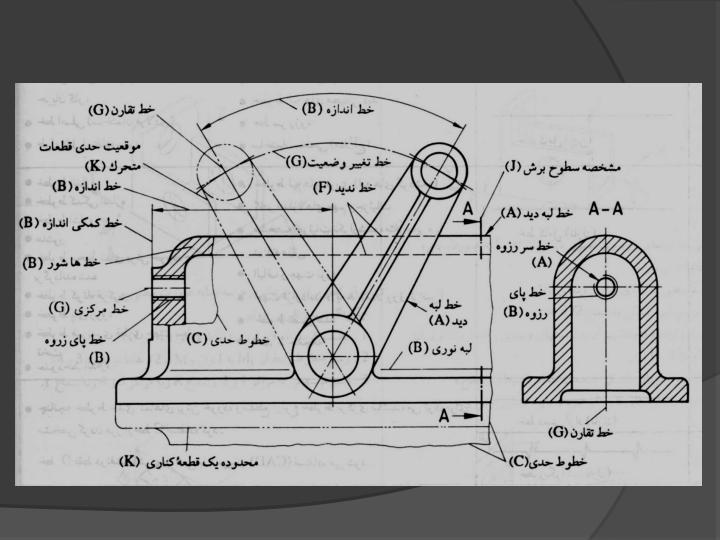 خط تقارن (G)
خط اندازه (B)
موقعیت حدی قطعات
متحرك (K)
خط تغییر وضعیت (G)
مشخصه سطوح برش (J)
خط اندازه (B)
خط ندید (F)
A
خط لبه دید (A)
A-A
خط کمکی اندازه (B)
خط سر رزوه
(A)
خط هاشور (B)
خط پای
رزوه (B)
خط مرکزی (G)
خط لبه
دید (A)
خط پای زروه
(B)
خطوط حدی (C)
لبه نوری (B)
A
خط تقارن (G)
محدوده یک قطعهٔ کناری (K)
خطوط حدی (C)